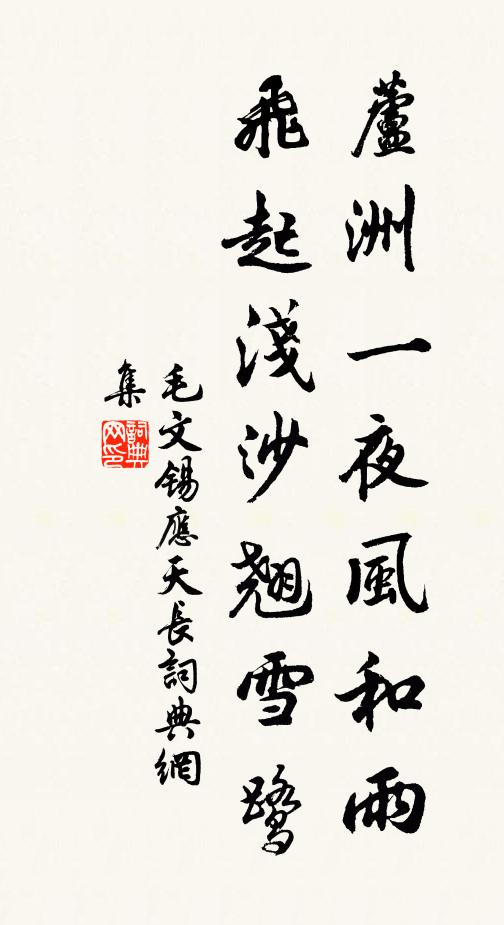 蘆洲一夜風和雨
飛起淺沙翹雪鷺
毛文錫應天長詞典網
集
詞典
網印